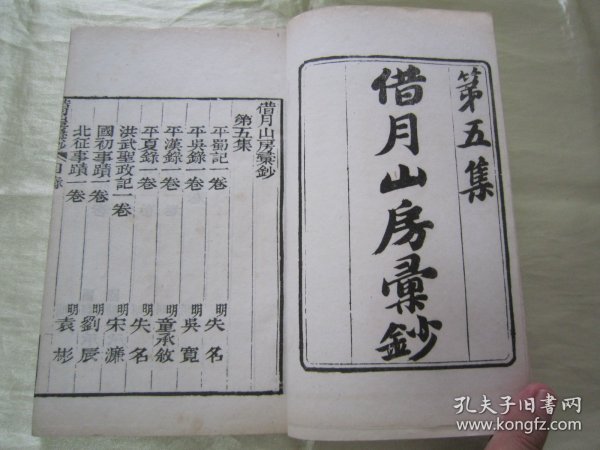 第五集
借月山房彙鈔
借月山房彙鈔
第五集
平蜀記一卷 明 失名
平吳錄一卷 明 吳寬
平漢錄一卷 明 童承敘
平夏錄一卷 明 失名
洪武聖政記一卷 明 宋濂
國初事蹟一卷 明 劉辰
北征事蹟一卷 明 袁彬
孔夫子旧书网